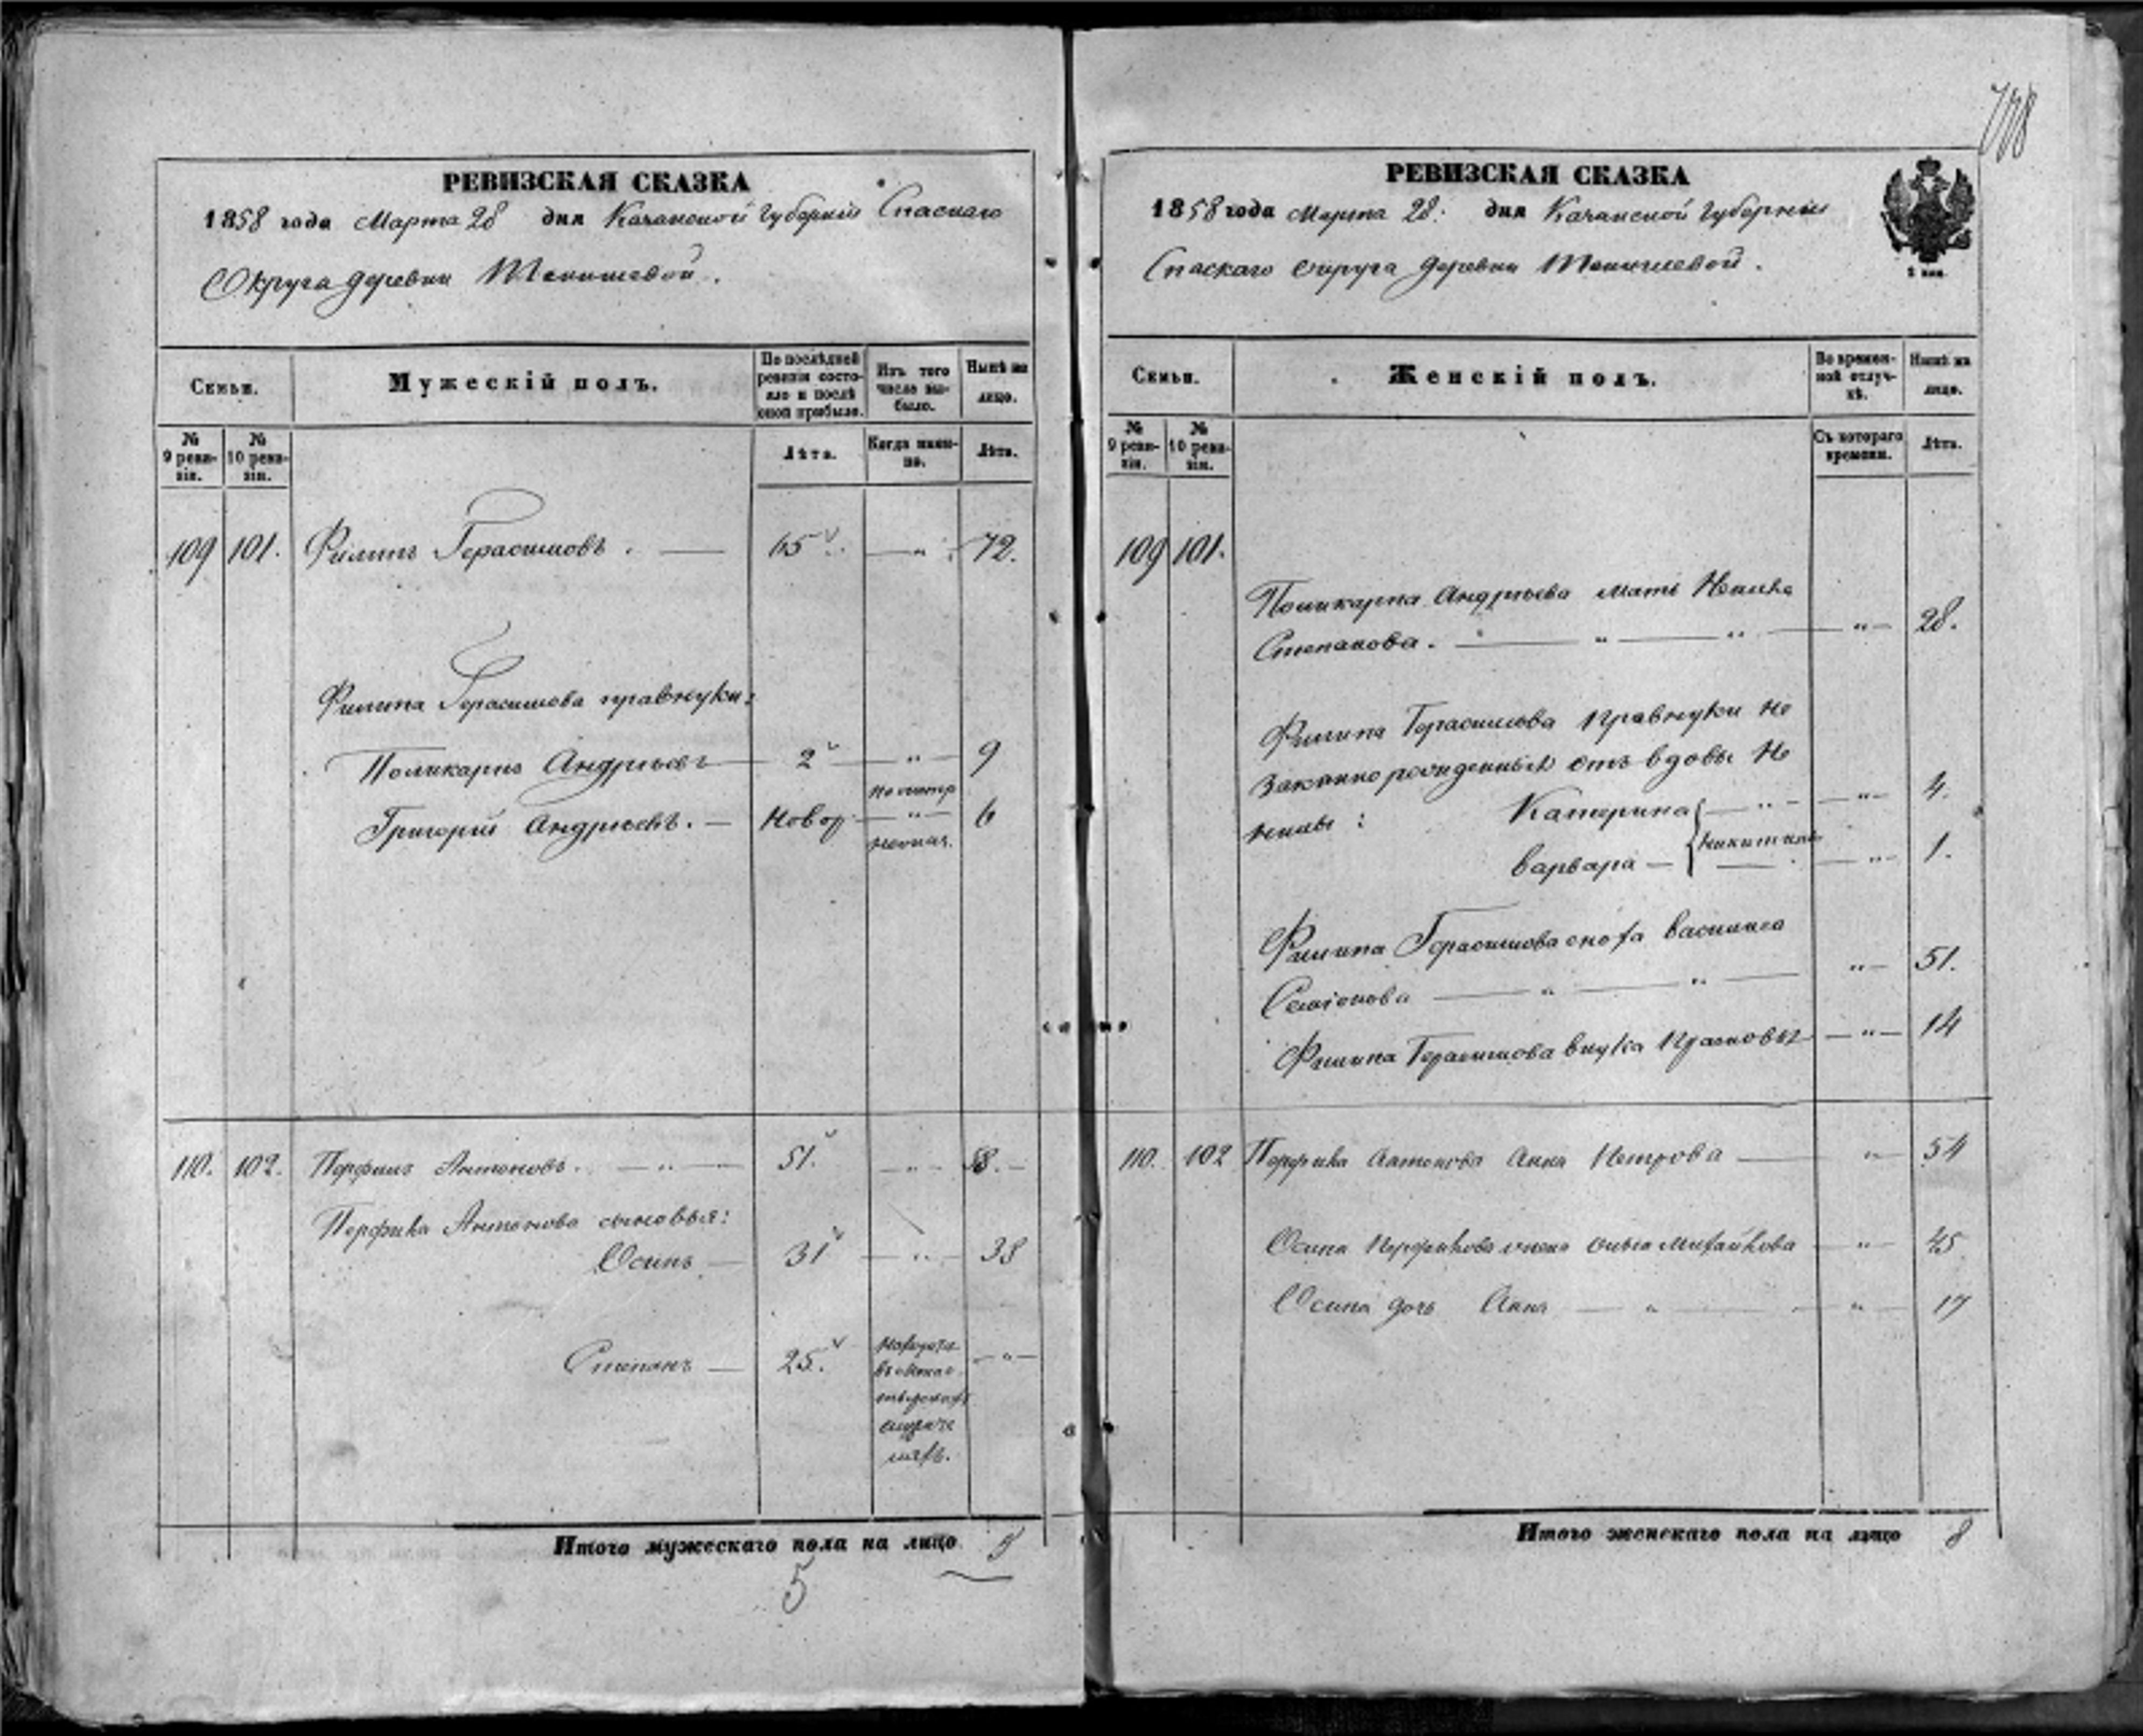 РЕВИЗСКАЯ СКАЗКА
1858 года Марта 28 дня Казанской Губернии Спаскаго
Округа деревни
Семьи.
Мужескій полъ.
По послѣдней ревизіи состояло и послѣ оной прибыло.
Изъ того числа выбыло.
Нынѣ на лицо.
№ 9 ревизіи.
№ 10 ревизіи.
Лѣта.
Когда именно.
Лѣта.
109 101. Филипъ Герасимовъ. — 65. — „ — 72.
Филипа Герасимова правнуки:
Поликарпъ Андрѣевъ — 2 — „ — 9
Григорій Андрѣевъ. — Новор — „ — 6
110. 102. Перфилъ Антоновъ. — „ — 51. — „ — 58. —
Перфила Антонова сыновья:
Осипъ — 31 — „ — 38
Степанъ — 25. — „ —
Итого мужескаго пола на лицо 5
5
РЕВИЗСКАЯ СКАЗКА
1858 года Марта 28: дня Казанской Губерніи
Спаскаго округа деревни
Семьи.
Женскій полъ.
Во временной отлучкѣ.
Нынѣ на лицо.
№ 9 ревизіи.
№ 10 ревизіи.
Съ котораго времени.
Лѣта.
109 101.
Поликарпа Андрѣева мать Ненила
Степанова. — „ — „ — „ — 28.
Филипа Герасимова правнуки не
законно рожденныя отъ вдовы Не
нилы: Катерина — „ — „ — 4.
Варвара — — „ — 1.
Филипа Герасимова сноха Василиса
Семіонова — „ — „ — „ — 51.
Филипа Герасимова внука — „ — 14
110. 102 Перфила Антонова Анна Петрова — „ — 54
Осипа Перфилова жена Михайлова — „ — 45
Осипа дочь Анна — „ — „ — 17
Итого женскаго пола на лицо 8